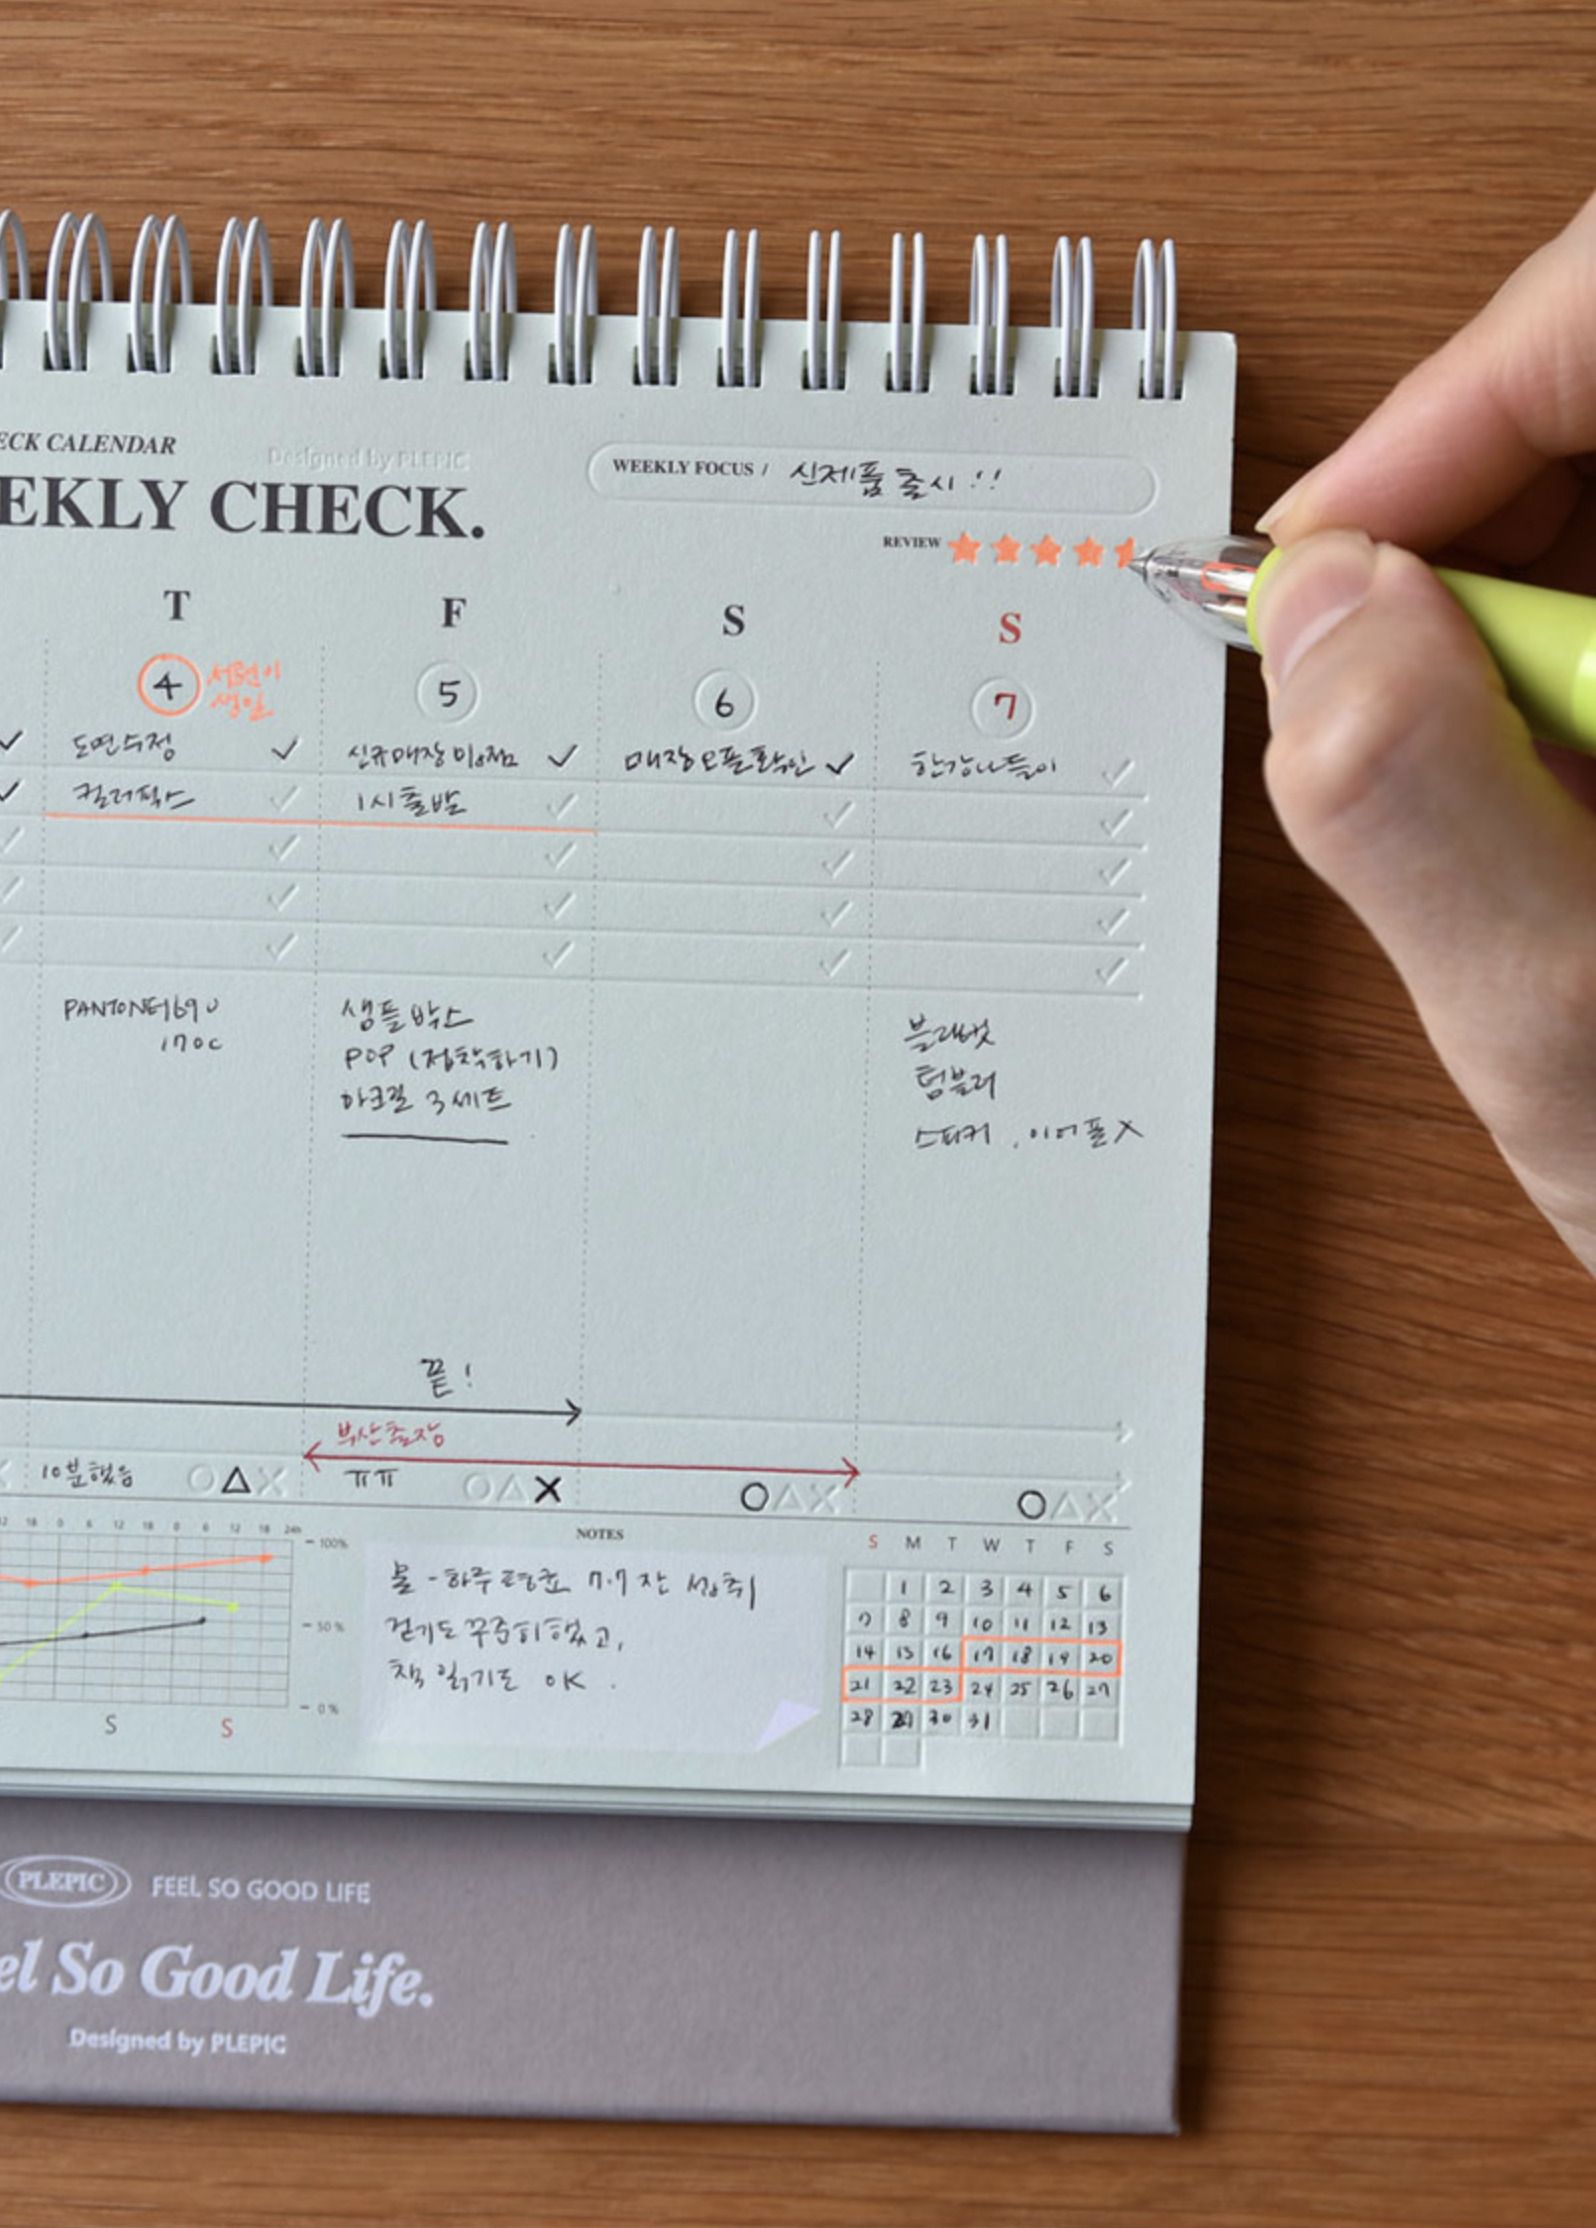 ECK CALENDAR
Designed by PLEPIC
EKLY CHECK.
WEEKLY FOCUS / 신제품 출시!!
REVIEW
T F S S
4 서현이 생일 5 6 7
도면수정 신규매장 입점 매장오픈확인 한강나들이
컬러픽스 1시출발
PANTONE 169 U
170 C
샘플박스
POP (정착하기)
아크릴 3세트
블랭킷
텀블러
스티커, 이어폰 X
끝!
부산출장
10분했음 ㅠㅠ
12 18 0 6 12 18 0 6 12 18 24h
100%
50%
0%
S S
NOTES
물 - 하루 평균 7.7잔 섭취
걷기도 꾸준히 했고,
책 읽기도 OK.
S M T W T F S
1 2 3 4 5 6
7 8 9 10 11 12 13
14 15 16 17 18 19 20
21 22 23 24 25 26 27
28 29 30 31
PLEPIC FEEL SO GOOD LIFE
el So Good Life.
Designed by PLEPIC